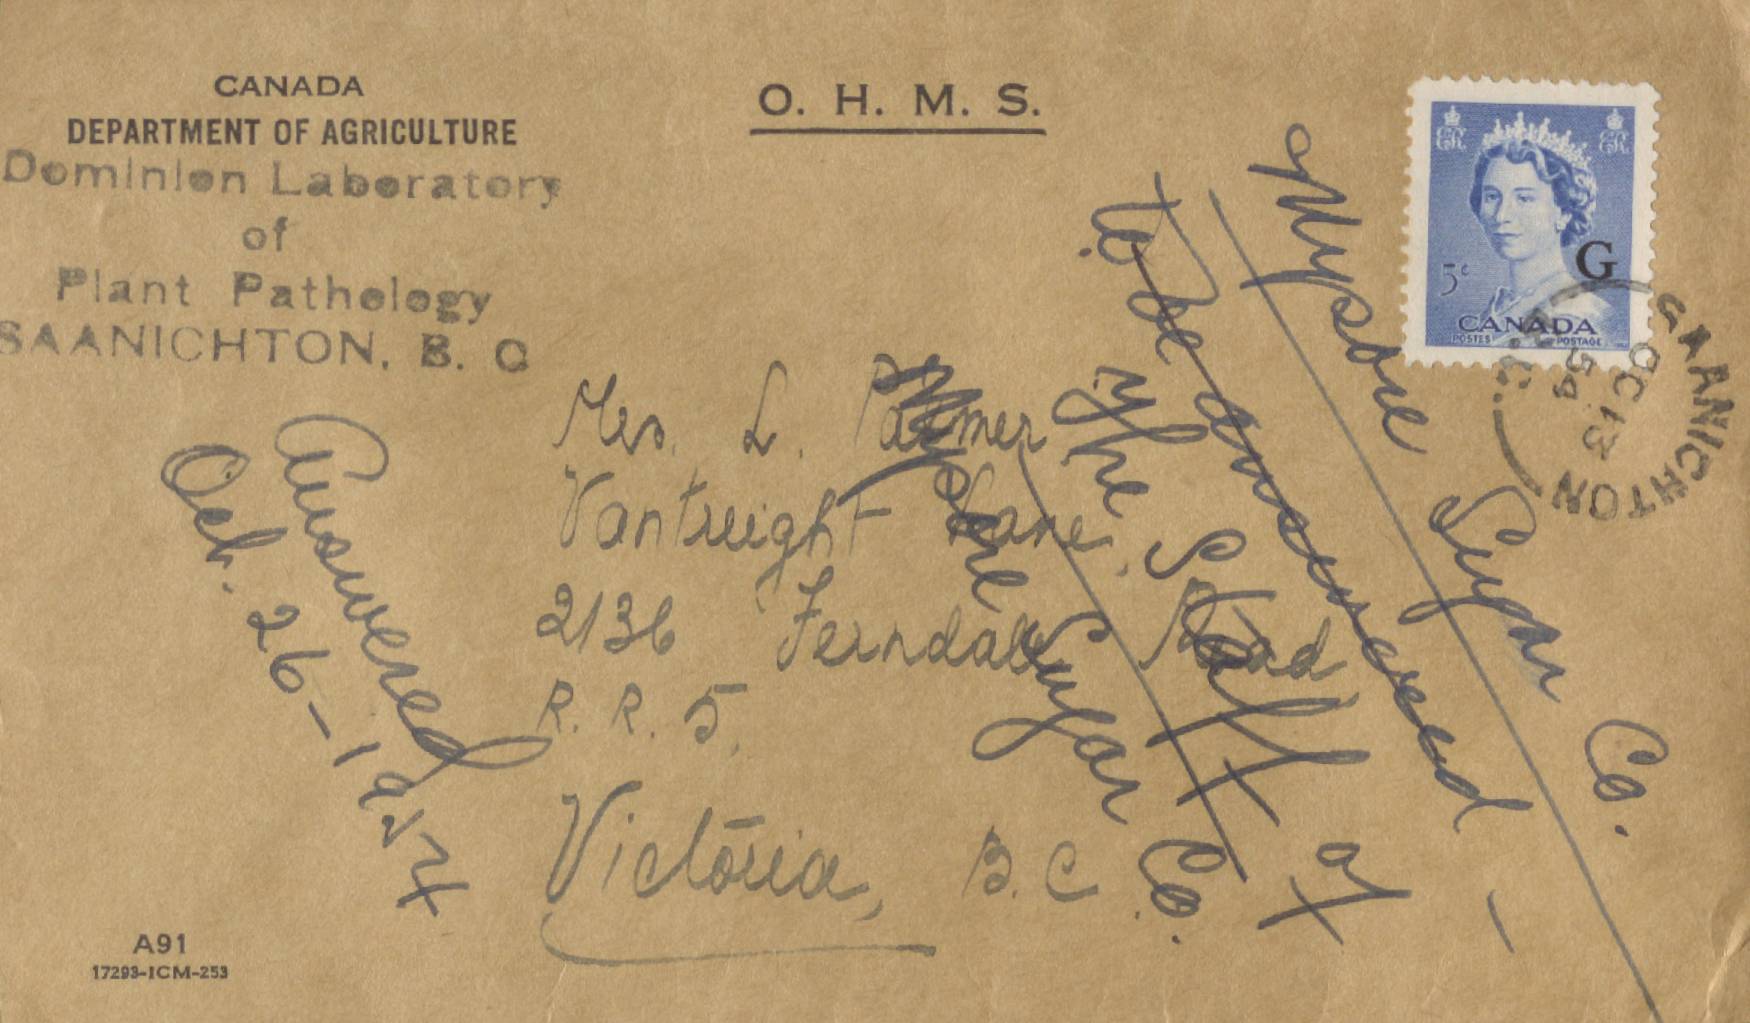 CANADA
DEPARTMENT OF AGRICULTURE
Dominion Laboratory
of
Plant Pathology
SAANICHTON, B. C
O. H. M. S.
5¢
G
CANADA
POSTES POSTAGE
SAANICHTON
OC 13
54
B.C.
Mrs. L. Palmer
Vantreight Lane,
2136 Ferndale Road,
R. R. 5,
Victoria, B. C.
Answered
Oct. 26-1954
Mysore Sugar Co.
To be answered -
The Staff of
Mysore Sugar Co.
A91
17293-ICM-253